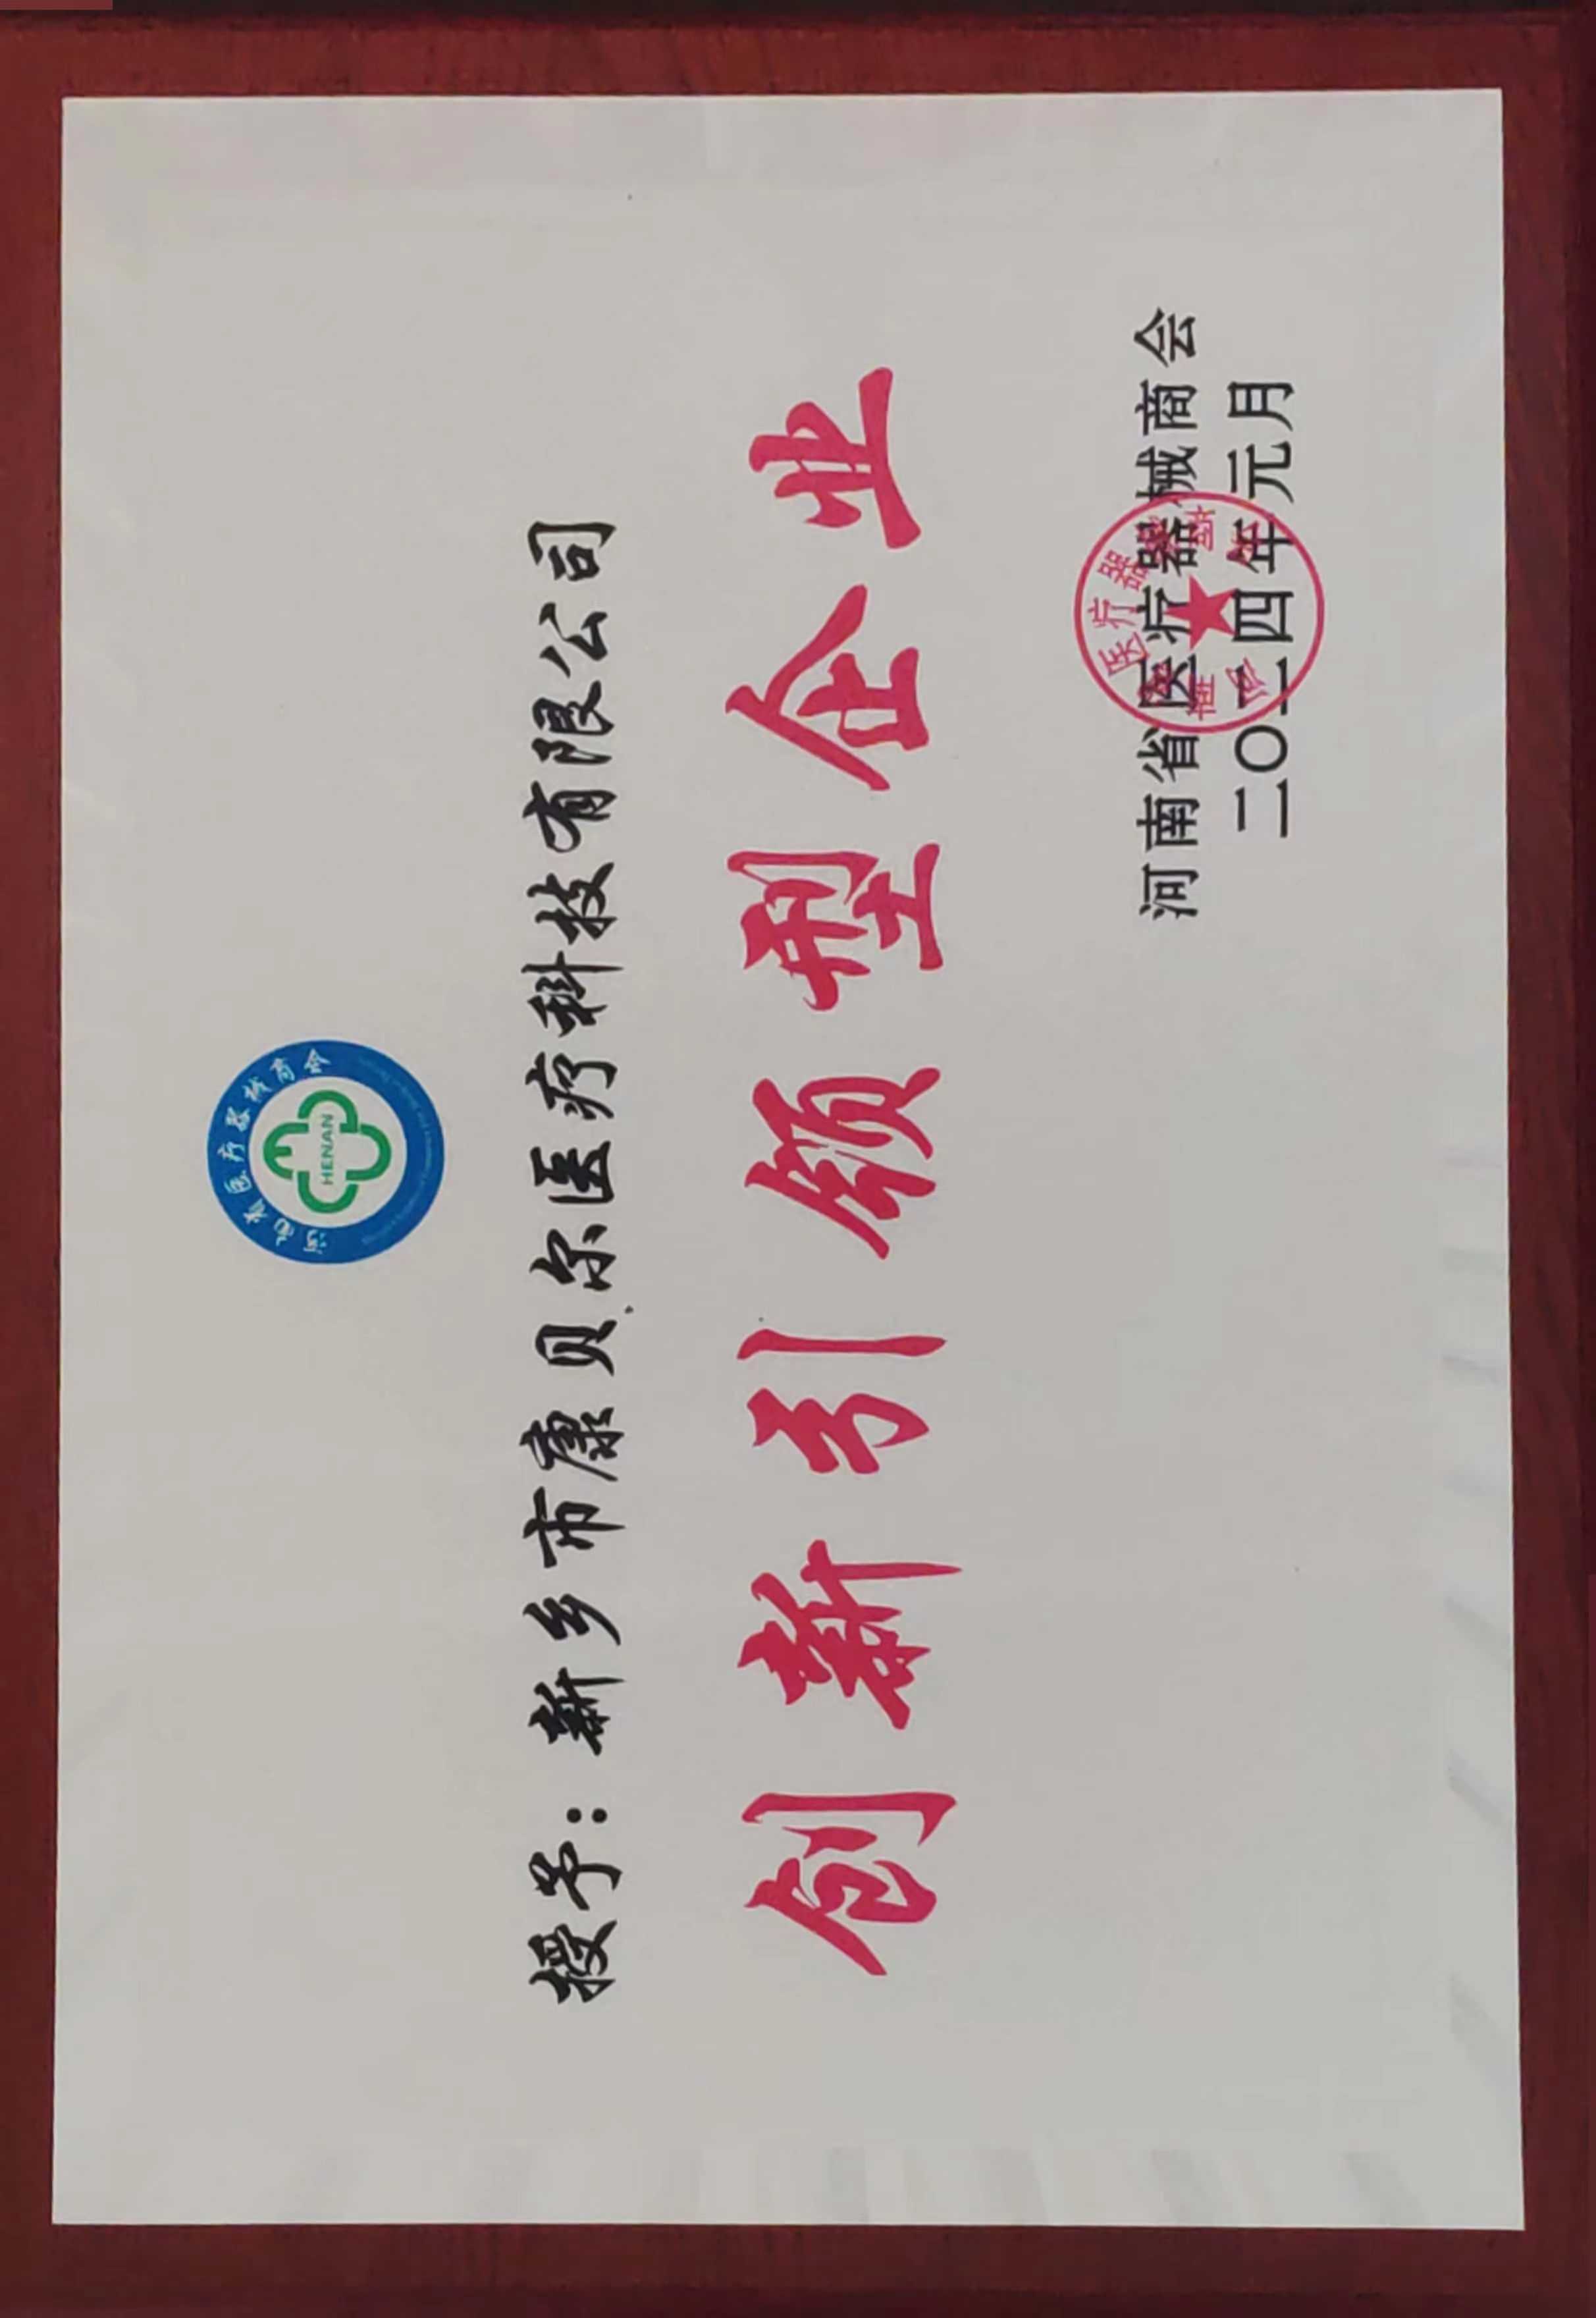 河南省医疗器械商会
HENAN
授予：新乡市康贝尔医疗科技有限公司
创新引领型企业
河南省医疗器械商会
二〇二四年元月